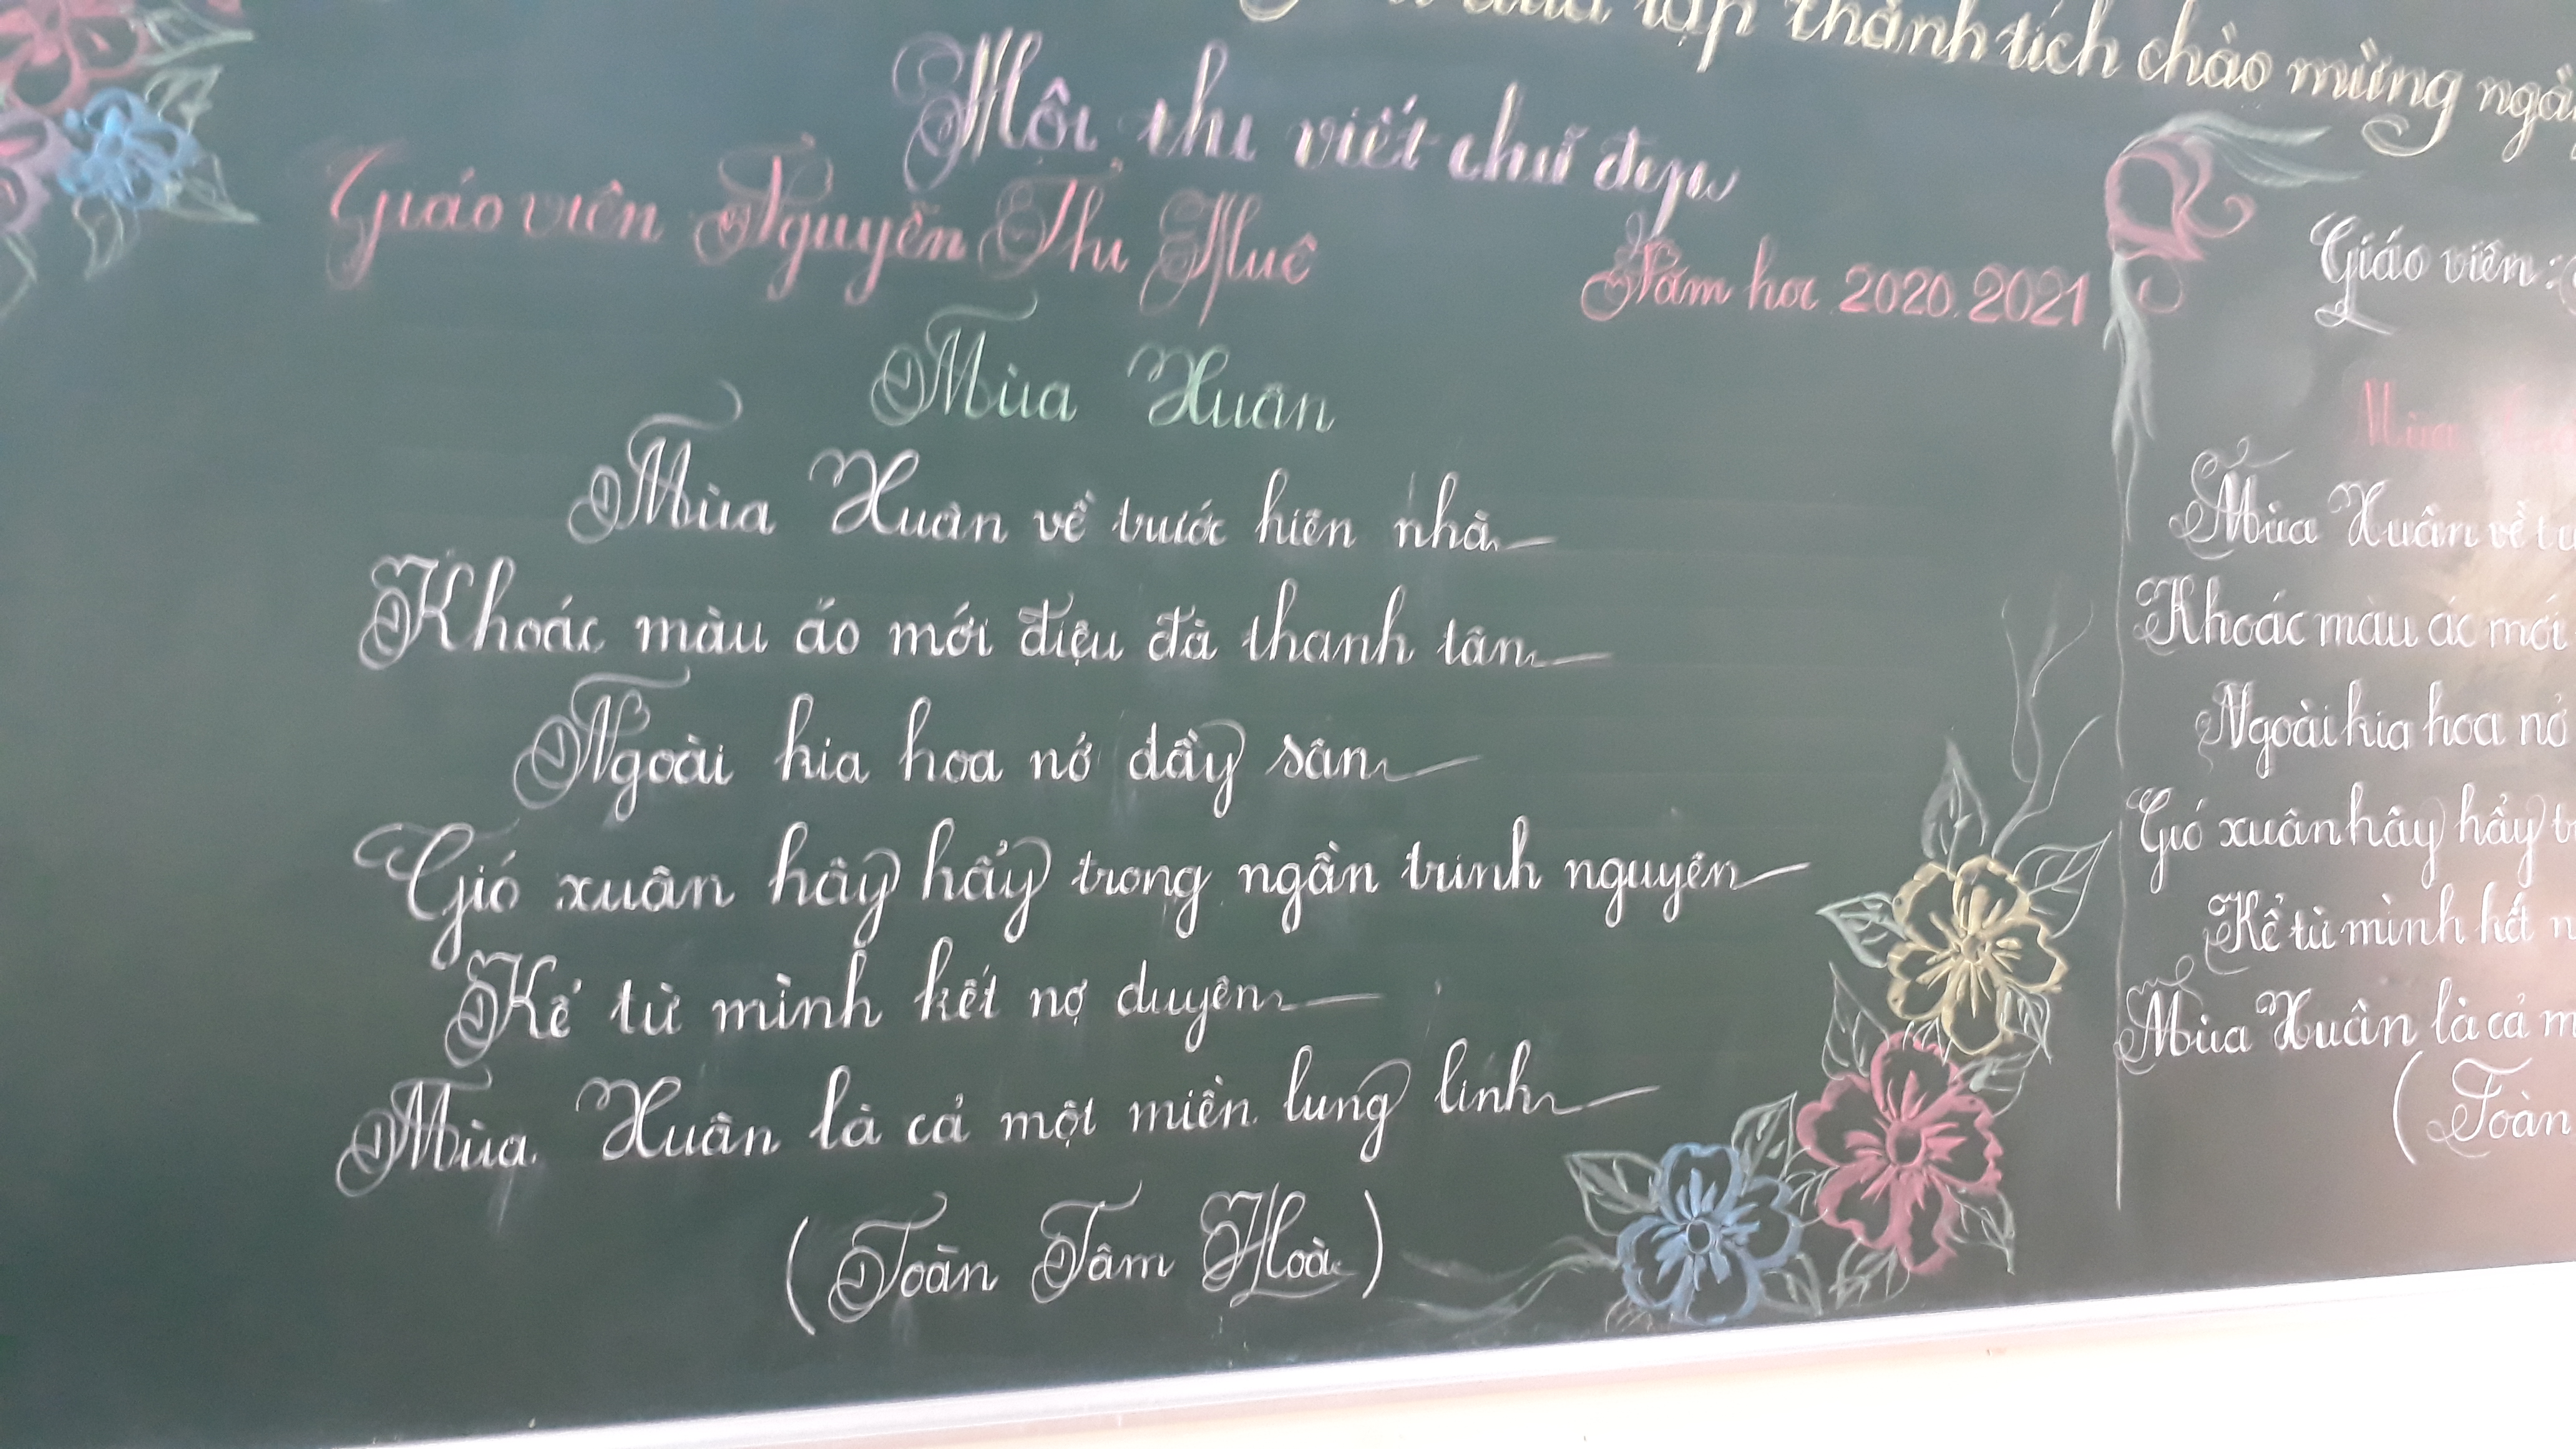 lập thành tích chào mừng
Hội thi viết chữ đẹp
Giáo viên Nguyễn Thị Huê
Năm học 2020.2021
Mùa Xuân
Mùa Xuân về trước hiên nhà
Khoác màu áo mới điệu đà thanh tân
Ngoài kia hoa nở đầy sân
Gió xuân hây hẩy trong ngần trinh nguyên
Kể từ mình kết nợ duyên
Mùa Xuân là cả một miền lung linh
(Toàn Tâm Hoà)
Giáo viên:
Mùa
Mùa Xuân về
Khoác màu áo mới
Ngoài kia hoa nở
Gió xuân hây hẩy
Kể từ mình kết
Mùa Xuân là cả
(Toàn